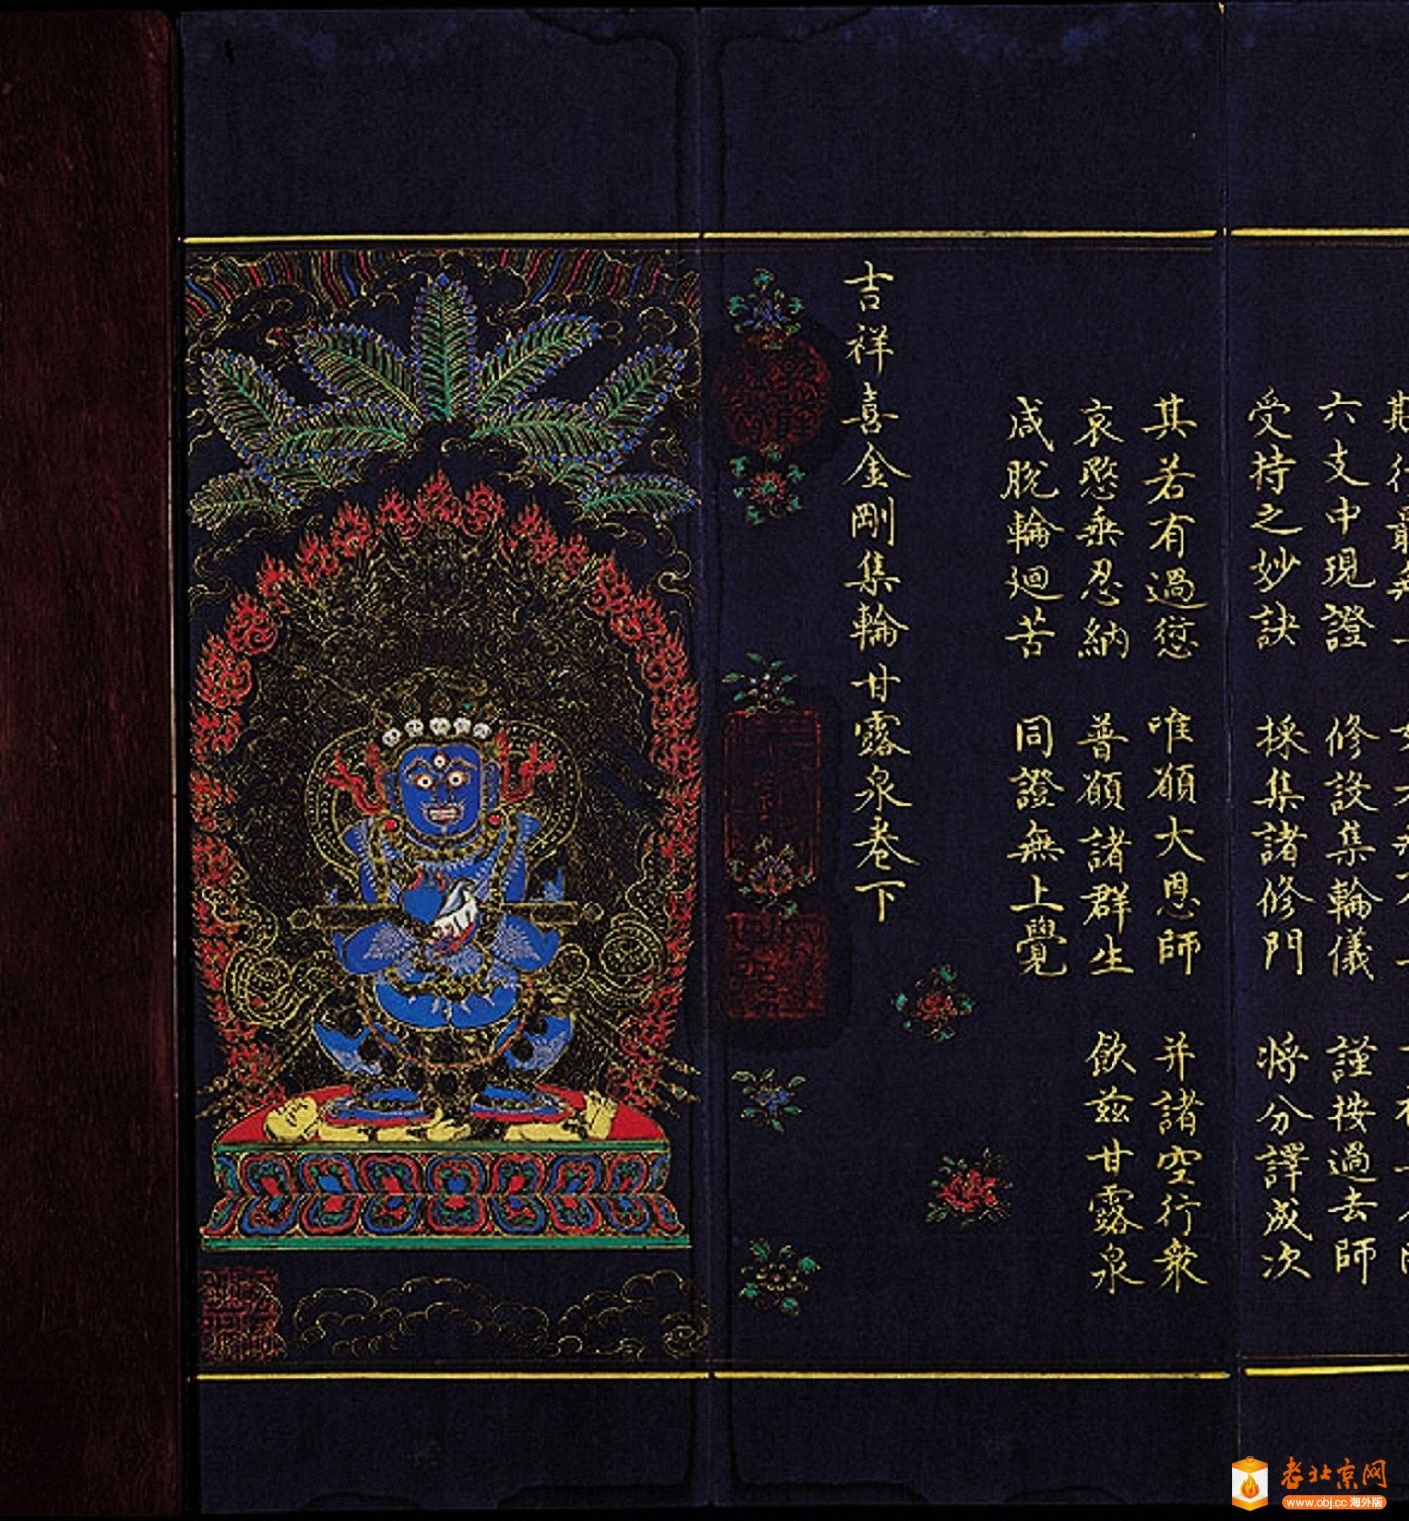 六支中現證 修設集輪儀 謹按過去師
受持之妙訣 採集諸修門 將分譯成次
其若有過愆 唯願大恩師 并諸空行衆
哀愍垂忍納 普願諸群生 飲茲甘露泉
咸脫輪迴苦 同證無上覺
吉祥喜金剛集輪甘露泉卷下
老北京网
www.obj.cc 海外版